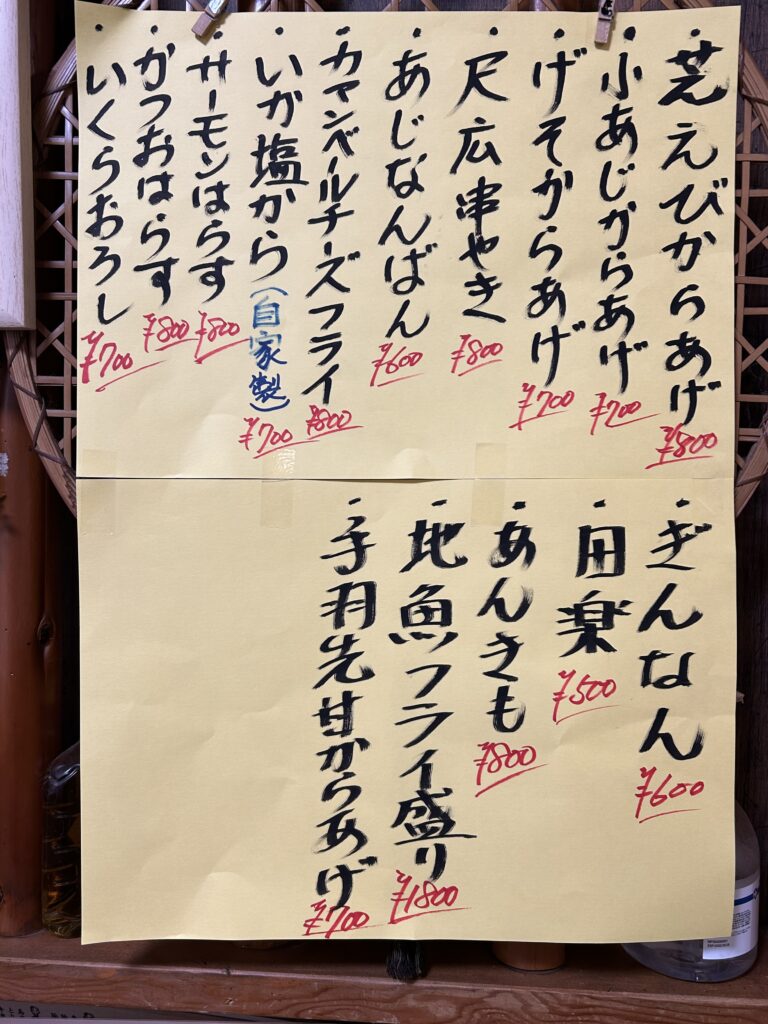 ・芝えびからあげ ¥800
・小あじからあげ ¥700
・げそからあげ ¥700
・尺広串やき ¥800
・あじなんばん ¥600
・カマンベールチーズフライ ¥800
・いか塩から(自家製) ¥700
・サーモンはらす ¥800
・かつおはらす ¥800
・いくらおろし ¥700
・ぎんなん ¥600
・田楽 ¥500
・あんきも ¥800
・地魚フライ盛り ¥1800
・手羽先甘からあげ ¥700